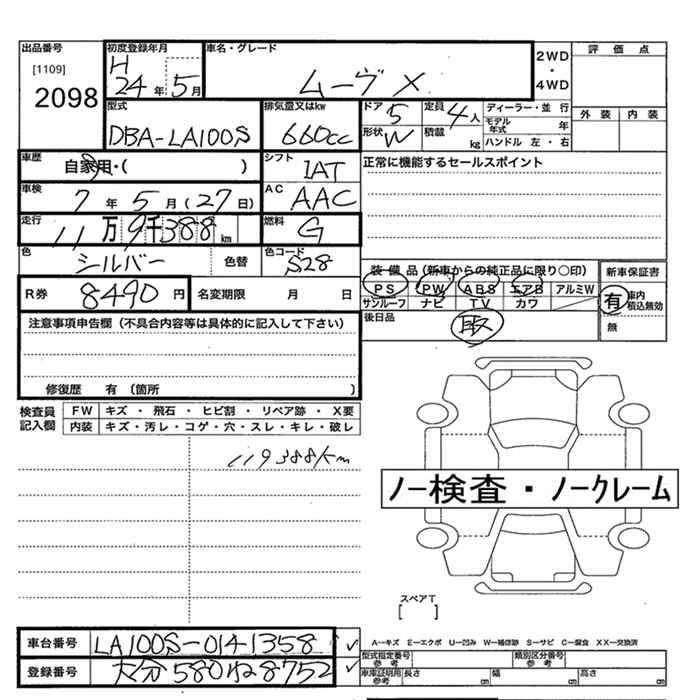 出品番号 初度登録年月 車名・グレード 2WD 評価点
[1109] H ・
2098 24年 5月 ムーヴ X 4WD
型式 排気量又はkw ドア 5 定員 4人 ディーラー・並行 外装 内装
DBA-LA100S 660cc 形状 W 積載 kg モデル年式 年
ハンドル 左・右
車歴 自家用・( ) シフト IAT 正常に機能するセールスポイント
車検 7年 5月(27日) AC AAC
走行 11万9千388km 燃料 G
色 シルバー 色替 色コード S28 装備品(新車からの純正品に限り○印) 新車保証書
R券 8490円 名変期限 月 日 PS PW ABS エアB アルミW 有 車内積込無効
サンルーフ ナビ TV カワ 無
注意事項申告欄(不具合内容等は具体的に記入して下さい) 後日品 取
修復歴 有 (箇所 )
検査員記入欄 FW キズ・飛石・ヒビ割・リペア跡・X要
内装 キズ・汚レ・コゲ・穴・スレ・キレ・破レ
119388km
ノー検査・ノークレーム
スペアT
[ ]
車台番号 LA100S-0141358 ✓ A−キズ E−エクボ U−凹み W−補修跡 S−サビ C−腐食 XX−交換済
登録番号 大分 580 ね 8752 ✓ 型式指定番号 参考 類別区分番号 参考
車庫証明用 参考 長さ cm 幅 cm 高さ cm